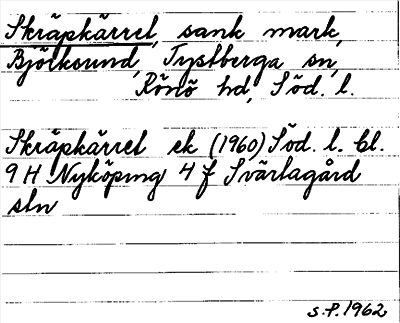 Skräpkärret, sank mark,
Björksund, Tystberga sn,
Rönö hd, Söd. l.
Skräpkärret ek (1960) Söd. l. bl.
9 H Nyköping 4 f Svärtagård
sln
S.P. 1962